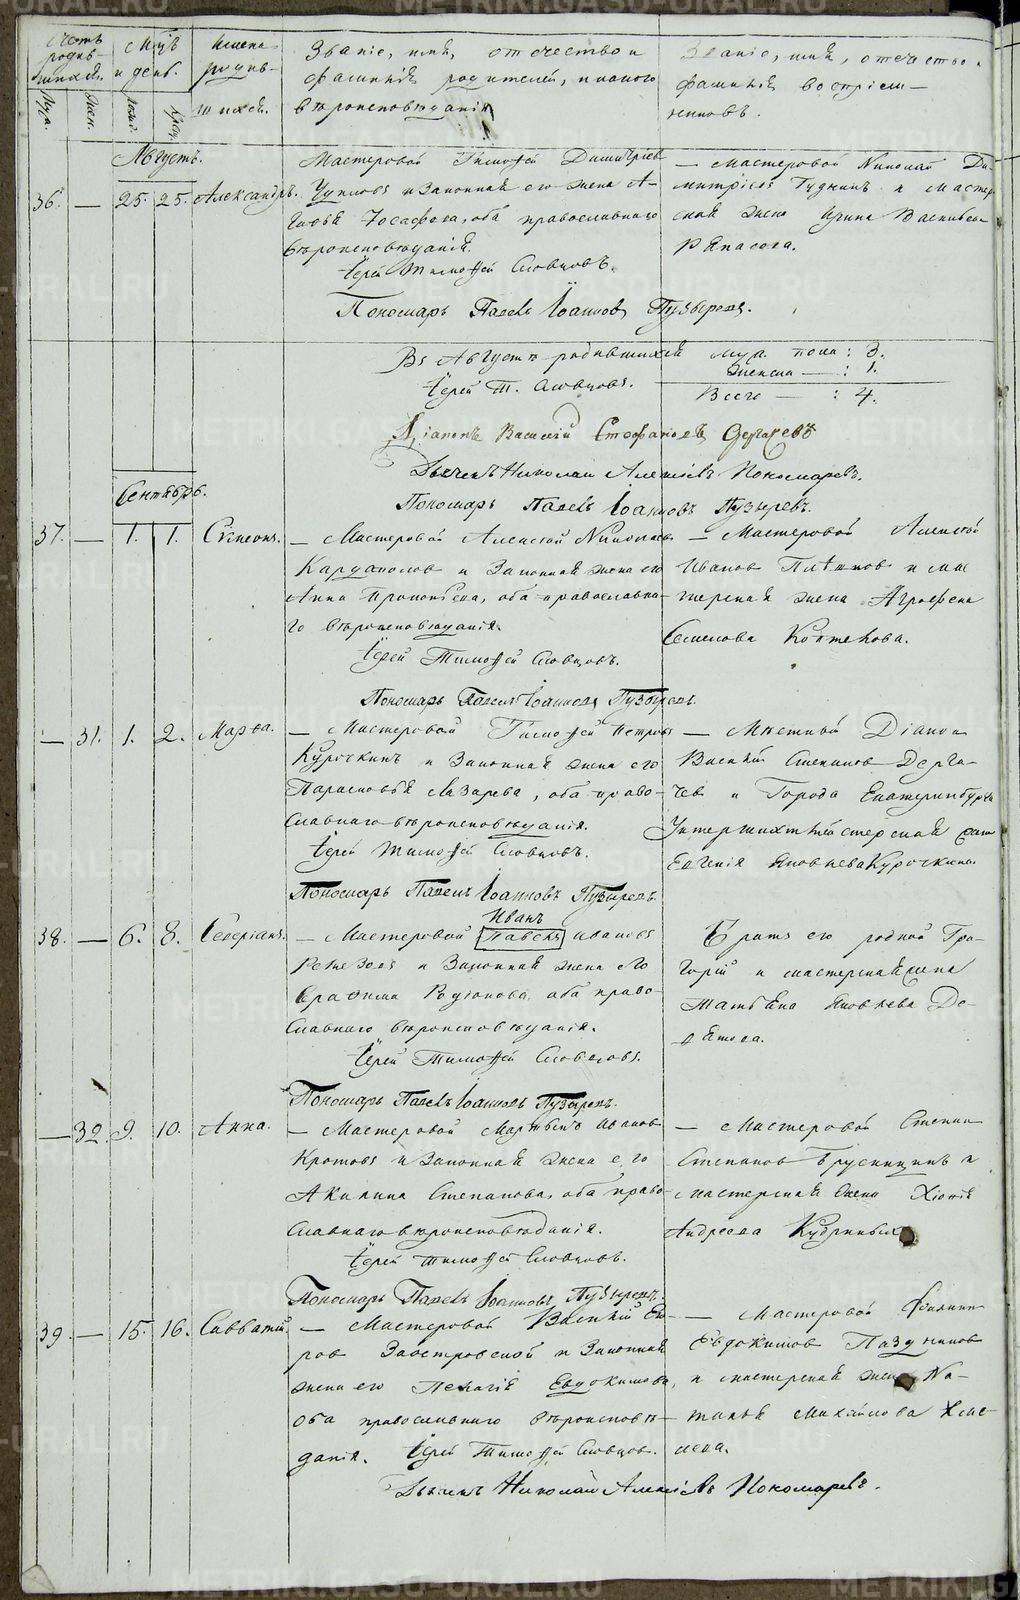 Счетъ родив-шихся.
М-цъ и день.
Имена родив-шихся.
Званіе, имя, отчество и
фамилія родителей, и какого
вѣроисповѣданія
Званіе, имя, отчество,
фамилія воспріем-
никовъ.
Муж. Жен.
Августъ.
36. — 25. 25. Александръ.
Мастеровой Тимофей Димитріев
и законная его жена А-
оба православнаго
вѣроисповѣданія.
Іерей Тимофей Словцовъ.
Пономарь Павелъ Іоанновъ Пузыревъ.
— Мастеровой Николай Ди-
митріевъ и мастер-
ская жена Ирина Васильева
Въ Августѣ родившихся муж. пола: 3.
Женска — : 1.
Іерей Т. Словцовъ.
Всего — : 4.
Діаконъ Василій Стефановъ Дергачевъ
Дьячекъ Николай Алексіевъ Пономаревъ.
Пономарь Павелъ Іоанновъ Пузыревъ.
Сентябрь.
37. — 1. 1. Симеонъ.
— Мастеровой Алексей Николаевъ
Кардаполов и Законная жена его
Анна Прокопьева, оба православна-
го вѣроисповѣданія.
Іерей Тимофей Словцовъ.
Пономарь Павелъ Іоанновъ Пузыревъ.
— Мастеровой Алексей
Иванов и мас
терская жена Агрофена
Семенова
— 31. 1. 2. Марѳа.
— Мастеровой Тимофей Петровъ
Курочкинъ и Законная жена его
Парасковья Лазарева, оба право-
славнаго вѣроисповѣданія.
Іерей Тимофей Словцовъ.
Пономарь Павелъ Іоанновъ Пузыревъ.
— Местный Діакон
Василій Степанов Дерга-
чев и Города Екатеринбурга
Унтершихтмейстерская
Евгенія Яковлева Курочкина.
38. — 6. 8. Северіанъ.
Иванъ
— Мастеровой Павелъ Ивановъ
и Законная жена его
Родіонова, оба право-
славнаго вѣроисповѣданія.
Іерей Тимофей Словцовъ.
Пономарь Павелъ Іоанновъ Пузыревъ.
Братъ его родной Гри-
горій и мастерская
Татьяна Яковлева
— 32. 9. 10. Анна.
— Мастеровой Мартынъ Иванов
Кротовъ и Законная жена его
Акилина Степанова, оба право-
славнаго вѣроисповѣданія.
Іерей Тимофей Словцовъ.
Пономарь Павелъ Іоанновъ Пузыревъ.
— Мастеровой Степан
Степанов Брусницынъ и
мастерская жена Хіонія
Андреева
39. — 15. 16. Савватій.
— Мастеровой Василій Ег-
ров Заостровской и Законная
жена его Пелагія Евдокимова,
оба православнаго вѣроисповѣ-
данія. Іерей Тимофей Словцов.
Дьячекъ Николай Алексіевъ Пономаревъ.
— Мастеровой
Евдокимов Пазников
и мастерская жена На-
талья Михайлова Хме-
лева.